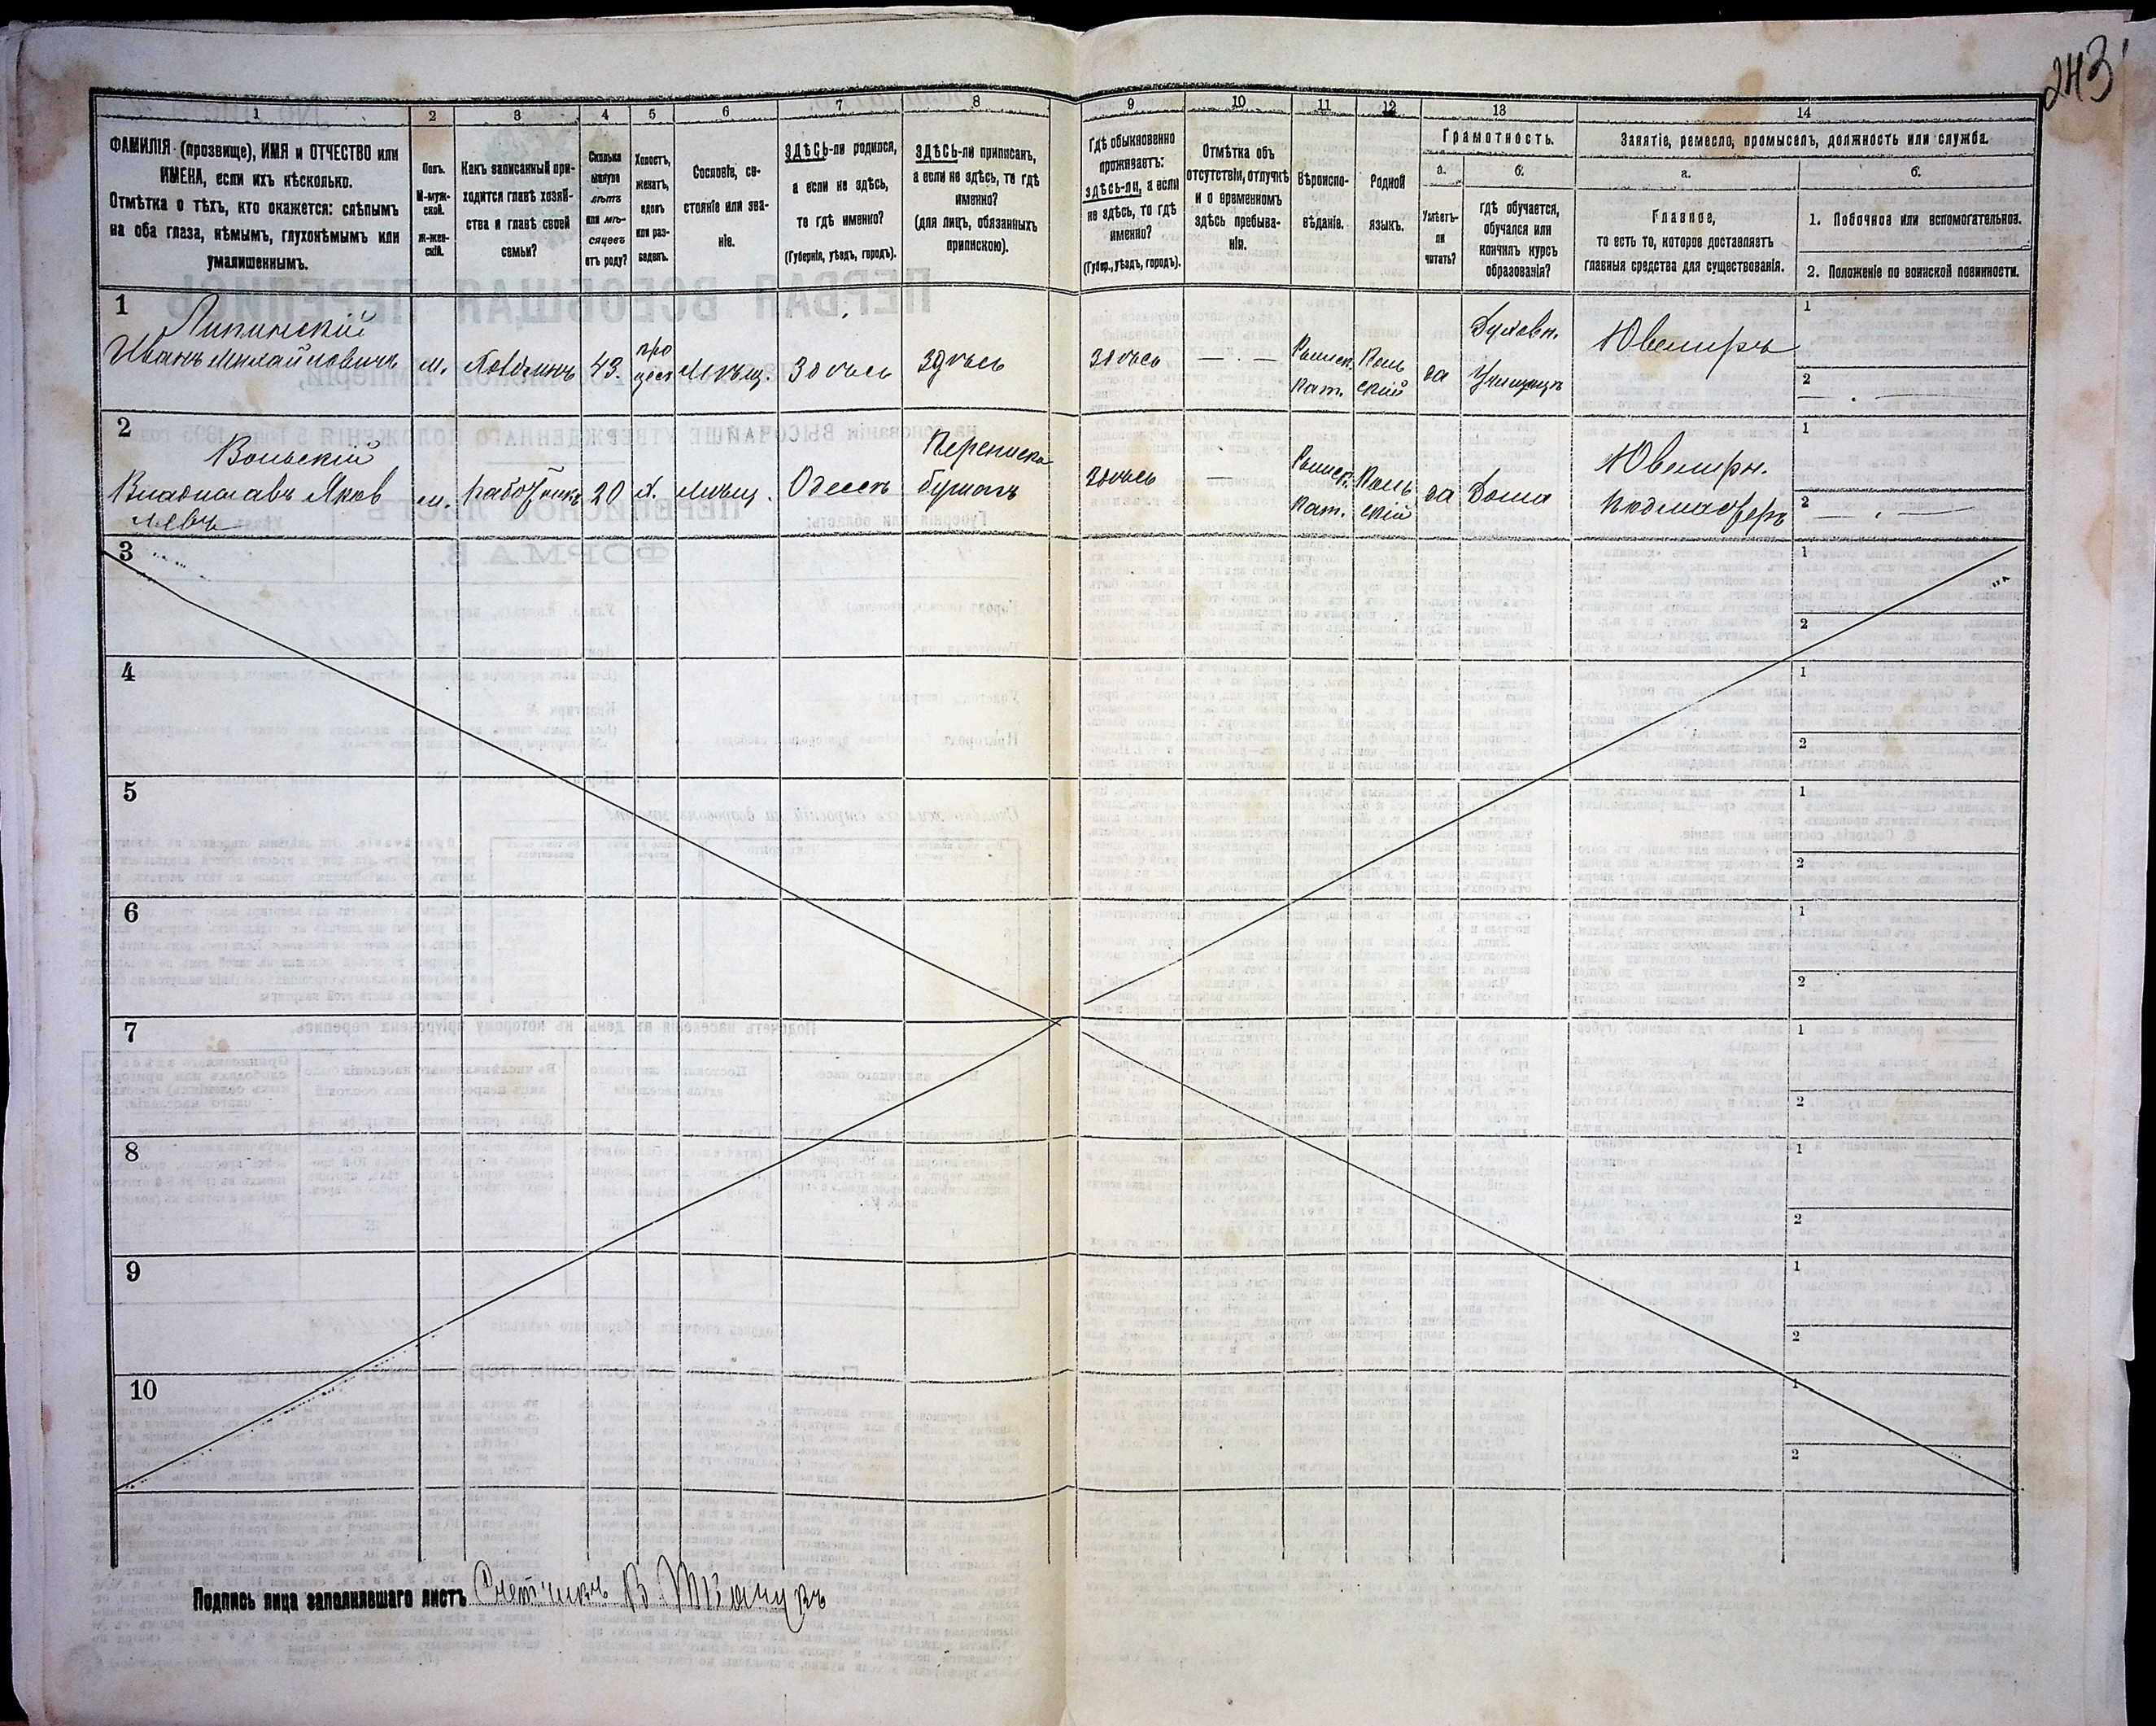 243
1 2 3 4 5 6 7 8 9 10 11 12 13 14
ФАМИЛІЯ (прозвище), ИМЯ и ОТЧЕСТВО или
ИМЕНА, если ихъ нѣсколько.
Отмѣтка о тѣхъ, кто окажется: слѣпымъ
на оба глаза, нѣмымъ, глухонѣмымъ или
умалишеннымъ.
Полъ.
М-муж-
ской.
Ж-жен-
скій.
Какъ записанный при-
ходится главѣ хозяй-
ства и главѣ своей
семьи?
Сколько
минуло
лѣтъ
или мѣ-
сяцевъ
отъ роду?
Холостъ,
женатъ,
вдовъ
или раз-
веденъ.
Сословіе, со-
стояніе или зва-
ніе.
ЗДѢСЬ-ли родился,
а если не здѣсь,
то гдѣ именно?
(Губернія, уѣздъ, городъ).
ЗДѢСЬ-ли приписанъ,
а если не здѣсь, то гдѣ
именно?
(для лицъ, обязанныхъ
припискою).
Гдѣ обыкновенно
проживаетъ:
здѣсь-ли, а если
не здѣсь, то гдѣ
именно?
(Губер., уѣздъ, городъ).
Отмѣтка объ
отсутствіи, отлучкѣ
и о временномъ
здѣсь пребыва-
ніи.
Вѣроиспо-
вѣданіе.
Родной
языкъ.
Грамотность.
а.
Умѣетъ-
ли
читать?
б.
гдѣ обучается,
обучался или
кончилъ курсъ
образованія?
Занятіе, ремесло, промыселъ, должность или служба.
а.
Главное,
то есть то, которое доставляетъ
главныя средства для существованія.
б.
1. Побочное или вспомогательное.
2. Положеніе по воинской повинности.
1
Липинскій
Иванъ Михайловичъ
м.
43.
Мѣщ.
Здѣсь
Здѣсь
Здѣсь
— . —
Римск.
Кат.
Поль
скій
да
Духовн.
Ювелиръ
1
2
— . —
2
Вольскій
Владиславъ Яков
левъ
м.
работникъ
20
х.
мѣщ.
Одессѣ
здѣсь
—
Римск.
Кат.
Поль
скій
да
Дома
Ювелирн.
подмастеръ
1
2
— . —
3
1
2
4
1
2
5
1
2
6
1
2
7
1
2
8
1
2
9
1
2
10
1
2
Подпись лица заполнявшаго листъ Счетчикъ В.